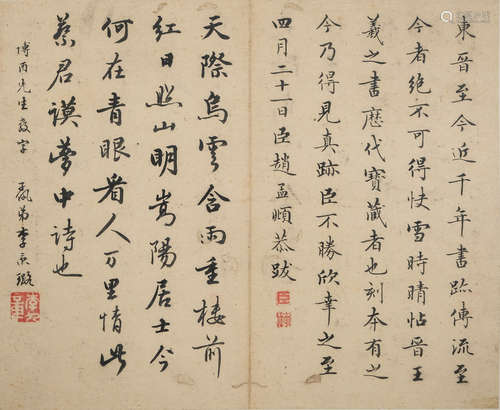 東晉至今近千年書跡傳流至
今者絕不可得快雪時晴帖晉王
羲之書歷代寶藏者也刻本有之
今乃得見真跡臣不勝欣幸之至
四月二十一日臣趙孟頫恭跋
天際烏雲含雨重樓前
紅日照山明嵩陽居士今
何在青眼看人万里情此
蔡君謨夢中詩也
博西先生教字 弟李